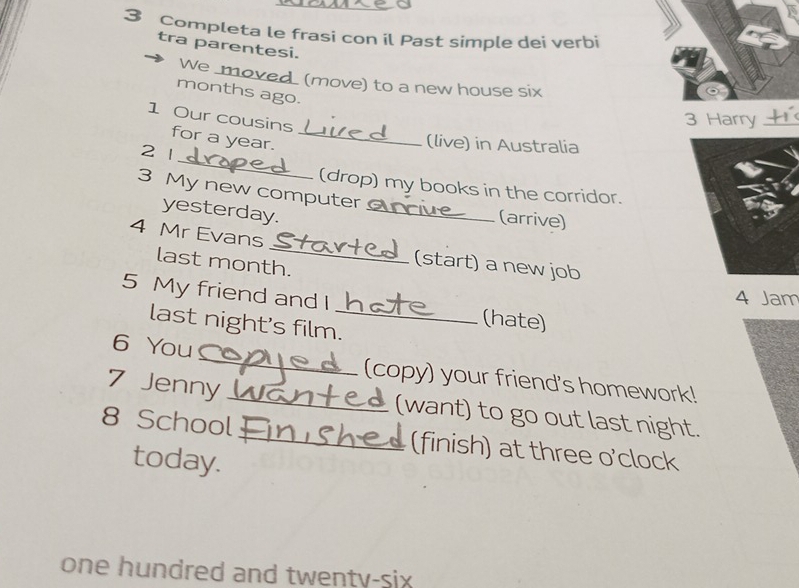 3 Completa le frasi con il Past simple dei verbi
tra parentesi.
→ We moved (move) to a new house six
months ago.
1 Our cousins Lived (live) in Australia
for a year.
2 I droped (drop) my books in the corridor.
3 My new computer arrive (arrive)
yesterday.
4 Mr Evans Started (start) a new job
last month.
5 My friend and I hate (hate)
last night's film.
6 You copyed (copy) your friend's homework!
7 Jenny Wanted (want) to go out last night.
8 School Finished (finish) at three o'clock
today.
one hundred and twenty-six
3 Harry
4 Jam